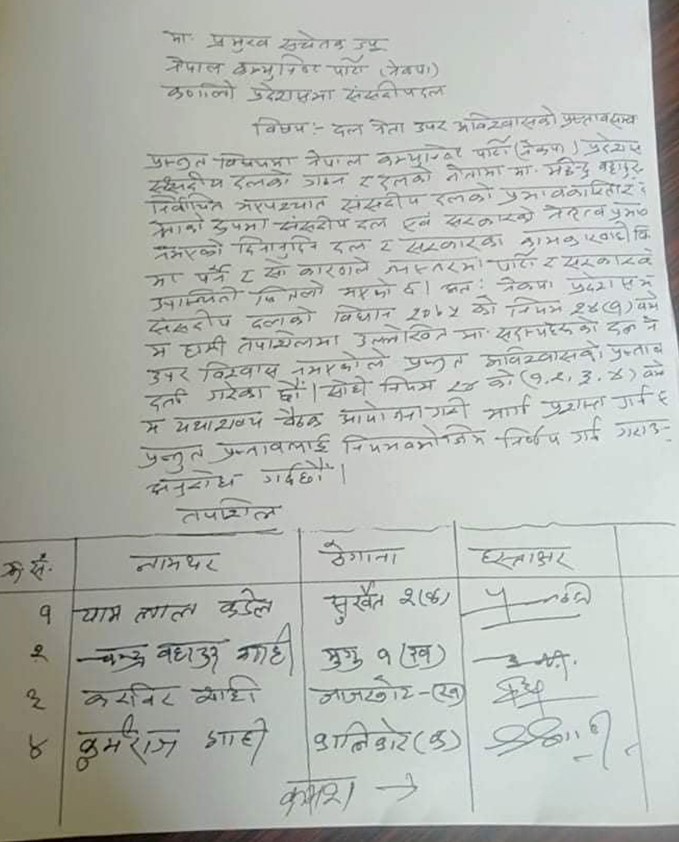 मा. प्रमुख सचेतक ज्यू
नेपाल कम्युनिष्ट पार्टी (नेकपा)
कर्णाली प्रदेशसभा संसदीय दल
विषय:- दल नेता उपर अविश्वासको प्रस्ताव
प्रस्तुत विषयमा नेपाल कम्युनिष्ट पार्टी (नेकपा) प्रदेशसभा
संसदीय दलको गठन र दलको नेतामा मा. महेन्द्र बहादुर
निर्वाचित भएपश्चात संसदीय दलको प्रभावकारिता र
नेताको रुपमा संसदीय दल एवं सरकारको नेतृत्व
नभएको दिनानुदिन दल र सरकारका कामकारवाही
मा पर्ने र सो कारणले पार्टी र सरकारको
उपस्थिती भएको छ। अत: नेकपा प्रदेशसभा
संसदीय दलको विधान २०७५ को नियम २४(१) बमो
म हामी तपशिलमा उल्लेखित मा. सदस्यहरुको दल ने
उपर विश्वास नभएकोले प्रस्तुत अविश्वासको प्रस्ताव
दर्ता गरेका छौं। सोही नियम २४ को (१, २, ३, ४) बमो
म यथाशक्य बैठक आयोजना गरी मार्ग प्रशस्त गर्न र
प्रस्तुत प्रस्तावलाई नियमबमोजिम निर्णय गर्न गराउन
अनुरोध गर्दछौं।
तपशिल
क्र.सं. नामथर ठेगाना हस्ताक्षर
१ याम लाल कडेल सुर्खेत २(क)
२ चन्द्र बहादुर शाही मुगु १(ख)
३ करविर शाही जाजरकोट-(ख)
४ कुर्मराज शाही कालिकोट (क)
क्रमश: →